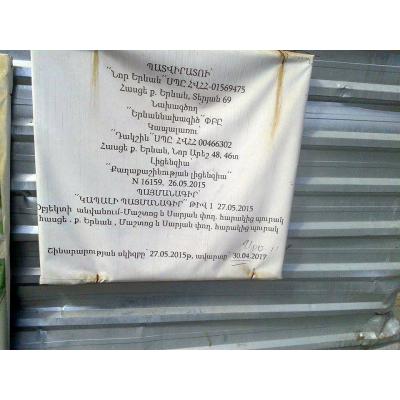 ՊԱՏՎԻՐԱՏՈՒ՝
՝՝Նոր Երևան՝՝ՍՊԸ ՀՎՀՀ-01569475
Հասցե ք. Երևան, Տերյան 69
Նախագծող՝
՝՝Երևաննախագիծ՝՝ՓԲԸ
Կապալառու՝
՝՝Դակշին՝՝ՍՊԸ ՀՎՀՀ 00466302
Հասցե ք. Երևան, Նոր Արեշ 48, 46տ
Լիցենզիա՝
՝՝Քաղաքաշինության լիցենզիա՝՝
N 16159, 26.05.2015
ՊԱՅՄԱՆԱԳԻՐ՝
՝՝ԿԱՊԱԼԻ ՊԱՅՄԱՆԱԳԻՐ՝՝ ԹԻՎ 1 27.05.2015
Օբյեկտի անվանում-Մաշտոց և Սարյան փող. հարակից պուրակ
հասցե . ք. Երևան , Մաշտոց և Սարյան փող. հարակից պուրակ
Շինարարության սկիզբը՝ 27.05.2015թ, ավարտ 30.04.2017